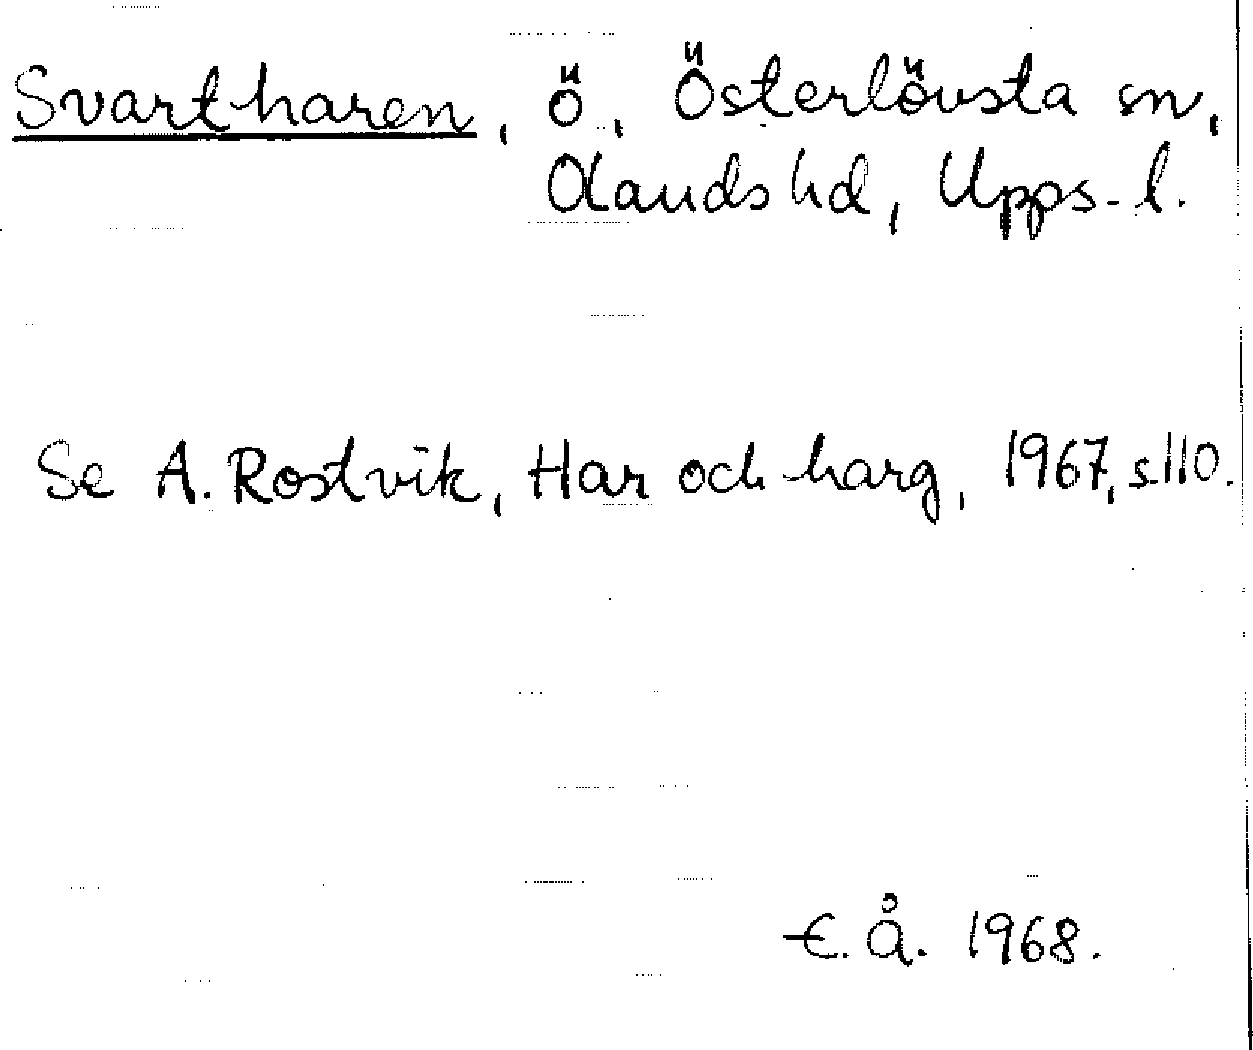 Svartharen, ö, Österlövsta sn,
Olands hd, Upps. l.
Se A. Rostvik, Har och harg, 1967, s. 110.
E. Å. 1968.